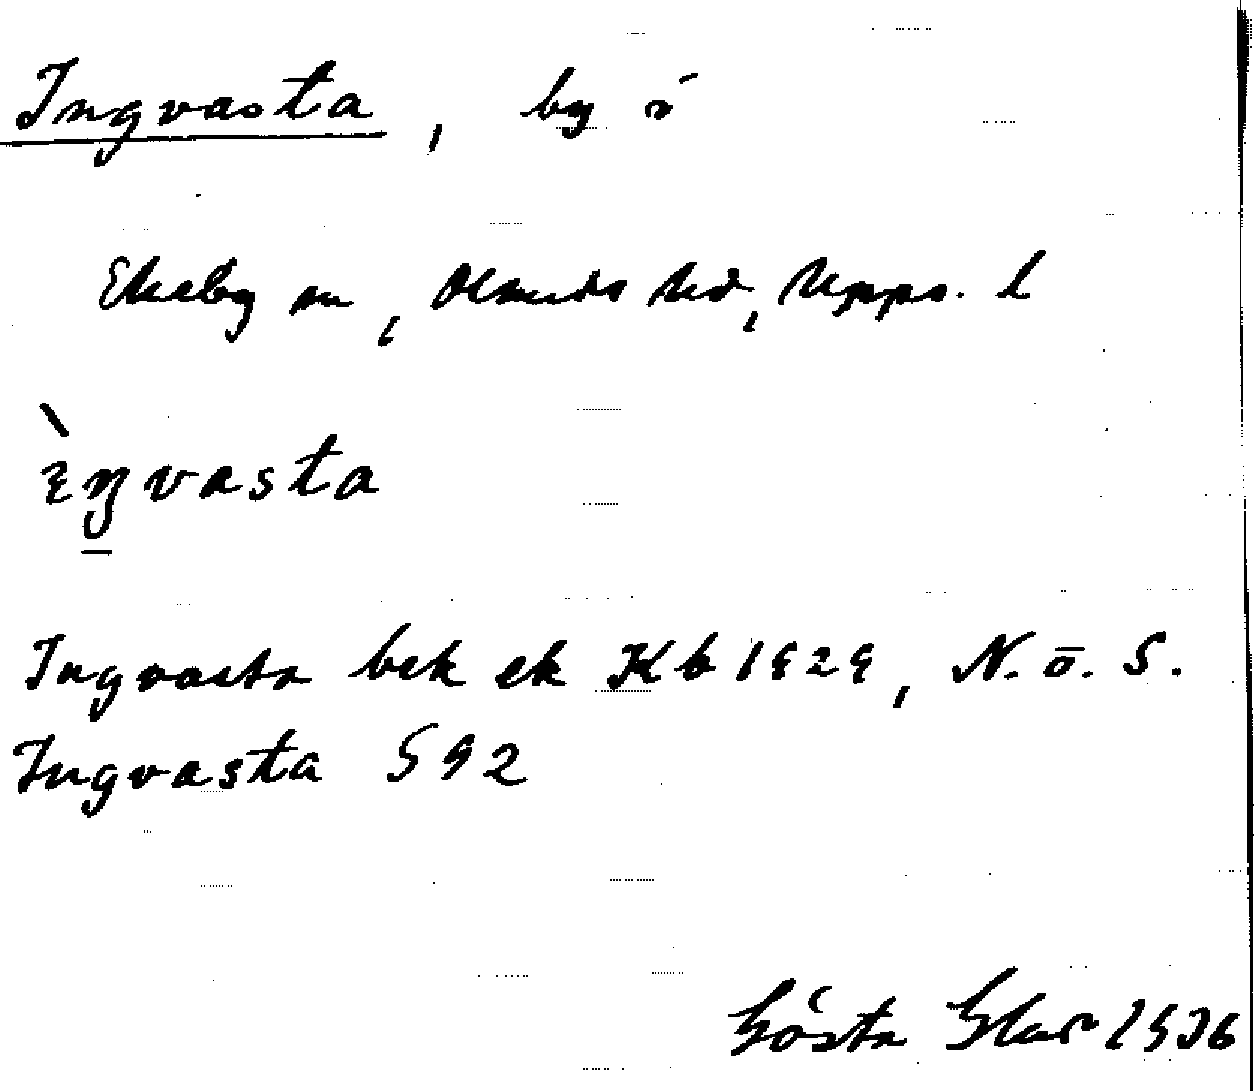 Ingvasta, by i
Ekeby sn, Olands hd, Upps. l
ìŋvasta
Ingvasta bek ek Kb 1829, N. o. S.
Ingvasta S 92
Gösta 1936